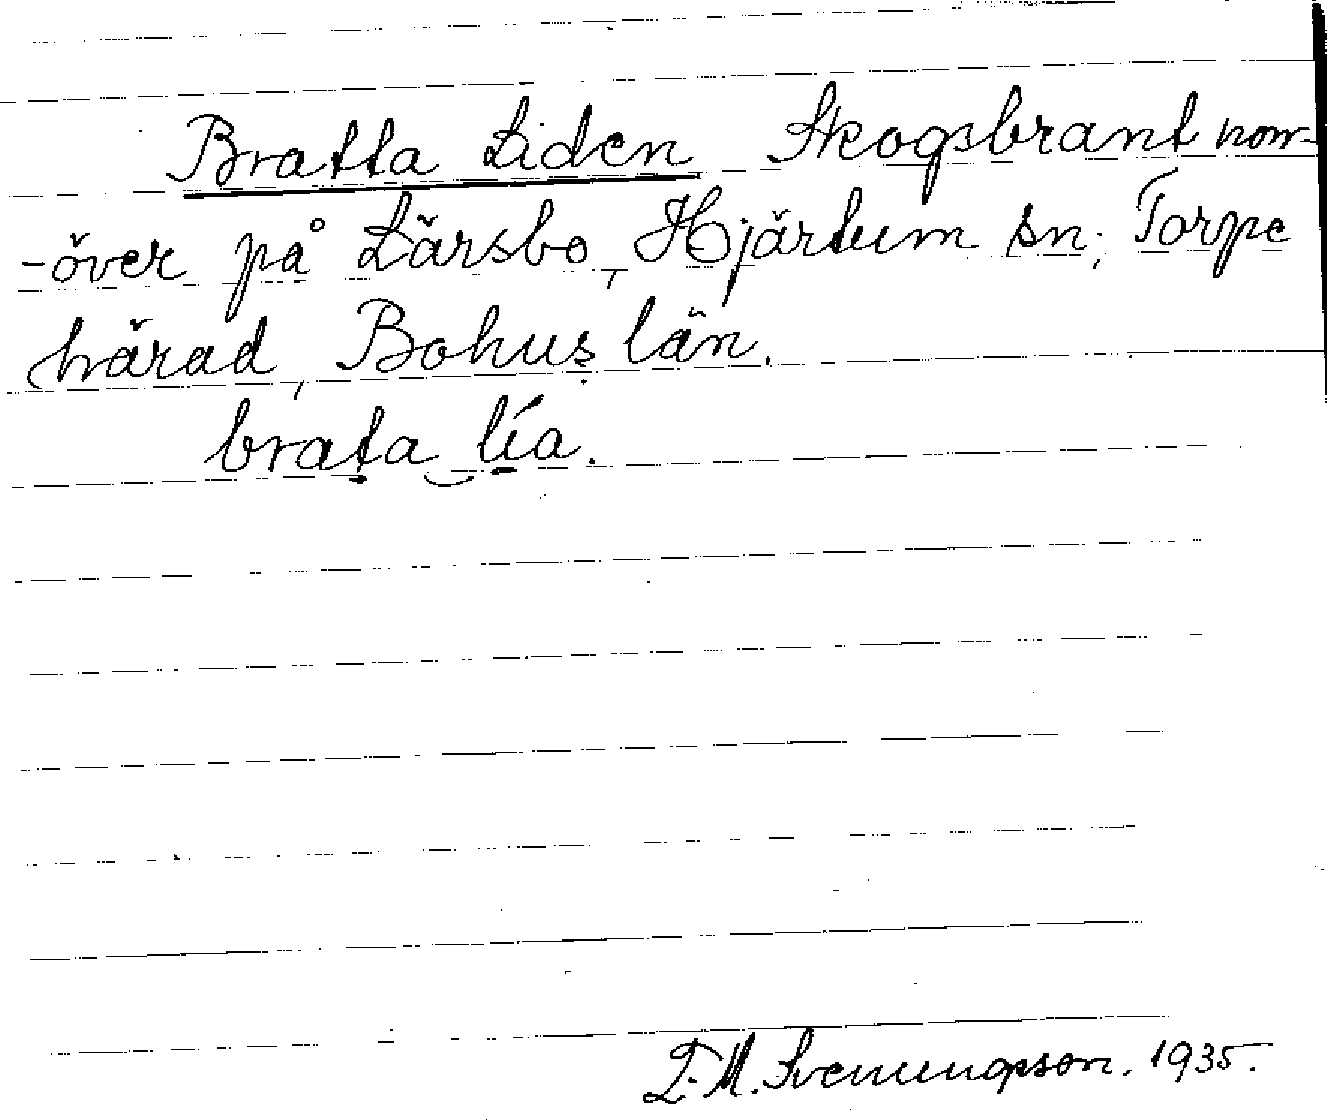 Bratta Liden Skogsbrant norr-
-över på Lärsbo, Hjärtum sn; Torpe
härad, Bohus län.
brata lía.
L. M. Svenungsson. 1935.